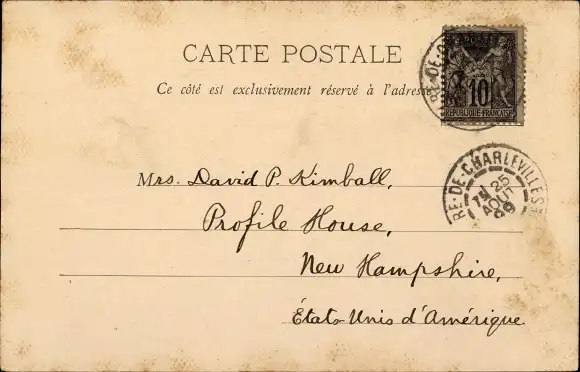 CARTE POSTALE
Ce côté est exclusivement réservé à l'adresse
POSTES
10
REPUBLIQUE FRANÇAISE
RE-DE-CHARLEVILLE
25
AOUT
99
Mrs. David P. Kimball,
Profile House,
New Hampshire,
États-Unis d'Amérique.